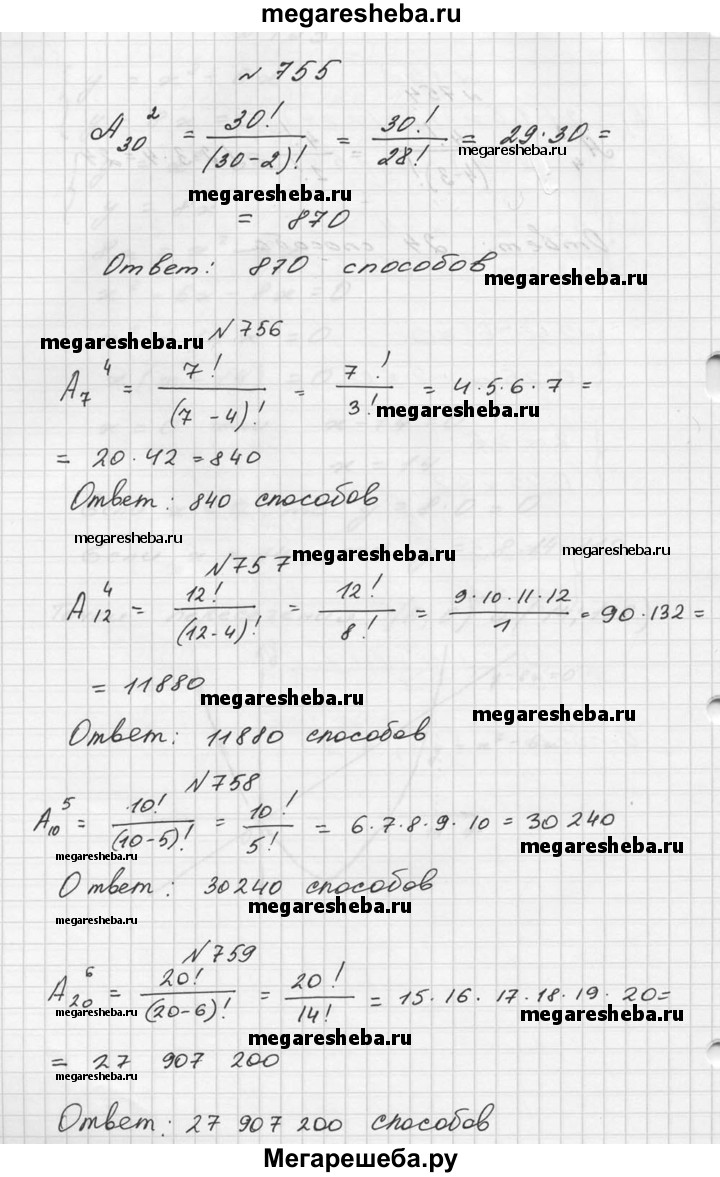 megaresheba.ru
№ 755
A₃₀² = 30!/(30-2)! = 30!/28! = 29·30 =
megaresheba.ru
megaresheba.ru
= 870
Ответ: 870 способов
megaresheba.ru
№ 756
megaresheba.ru
A₇⁴ = 7!/(7-4)! = 7!/3! = 4·5·6·7 =
megaresheba.ru
= 20·42 = 840
Ответ: 840 способов
megaresheba.ru
№ 757
megaresheba.ru
A₁₂⁴ = 12!/(12-4)! = 12!/8! = 9·10·11·12/1 = 90·132 =
= 11880
megaresheba.ru
megaresheba.ru
Ответ: 11880 способов
№ 758
A₁₀⁵ = 10!/(10-5)! = 10!/5! = 6·7·8·9·10 = 30 240
megaresheba.ru
megaresheba.ru
Ответ: 30240 способов
megaresheba.ru
megaresheba.ru
№ 759
A₂₀⁶ = 20!/(20-6)! = 20!/14! = 15·16·17·18·19·20=
megaresheba.ru
megaresheba.ru
megaresheba.ru
= 27 907 200
megaresheba.ru
Ответ: 27 907 200 способов
Мегарешеба.ру